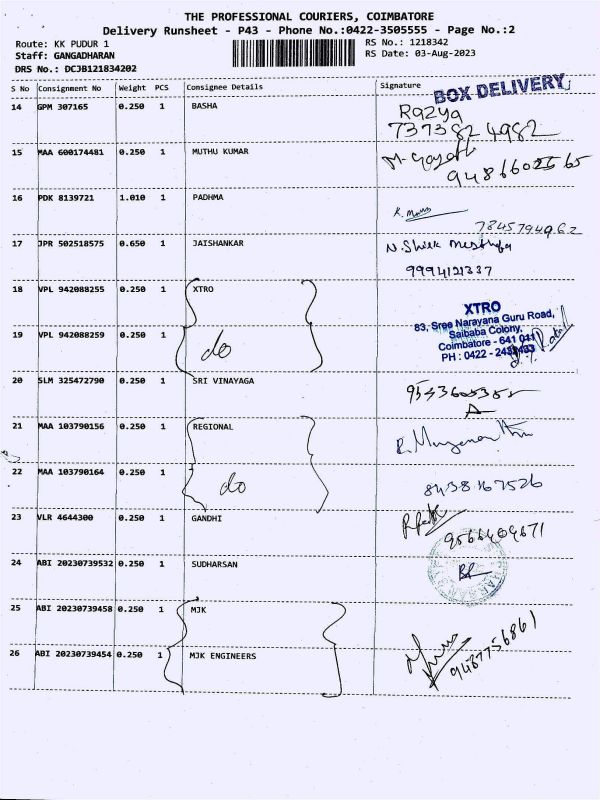 THE PROFESSIONAL COURIERS, COIMBATORE
Delivery Runsheet - P43 - Phone No.:0422-3505555 - Page No.:2
Route: KK PUDUR 1 RS No.: 1218342
Staff: GANGADHARAN RS Date: 03-Aug-2023
DRS No.: DCJB121834202
S No Consignment No Weight PCS Consignee Details Signature
BOX DELIVERY
14 GPM 307165 0.250 1 BASHA Razya
7373824982
15 MAA 600174481 0.250 1 MUTHU KUMAR
16 PDK 8139721 1.010 1 PADHMA
7845794962
17 JPR 502518575 0.650 1 JAISHANKAR
9994121337
18 VPL 942088255 0.250 1 XTRO
XTRO
83, Sree Narayana Guru Road,
Saibaba Colony,
Coimbatore - 641 011
PH : 0422 -
19 VPL 942088259 0.250 1 do
20 SLM 325472790 0.250 1 SRI VINAYAGA
21 MAA 103790156 0.250 1 REGIONAL
22 MAA 103790164 0.250 1 do 8438167526
23 VLR 4644300 0.250 1 GANDHI
9566404671
24 ABI 20230739532 0.250 1 SUDHARSAN
25 ABI 20230739458 0.250 1 MJK
26 ABI 20230739454 0.250 1 MJK ENGINEERS
9487756861